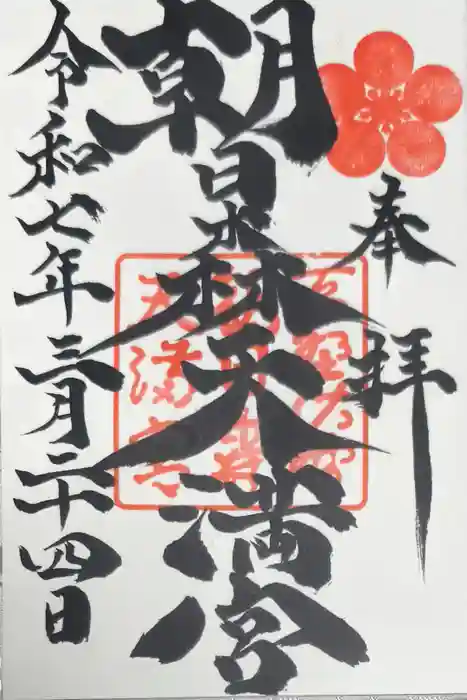 奉拝
朝日森天満宮
令和七年三月二十四日